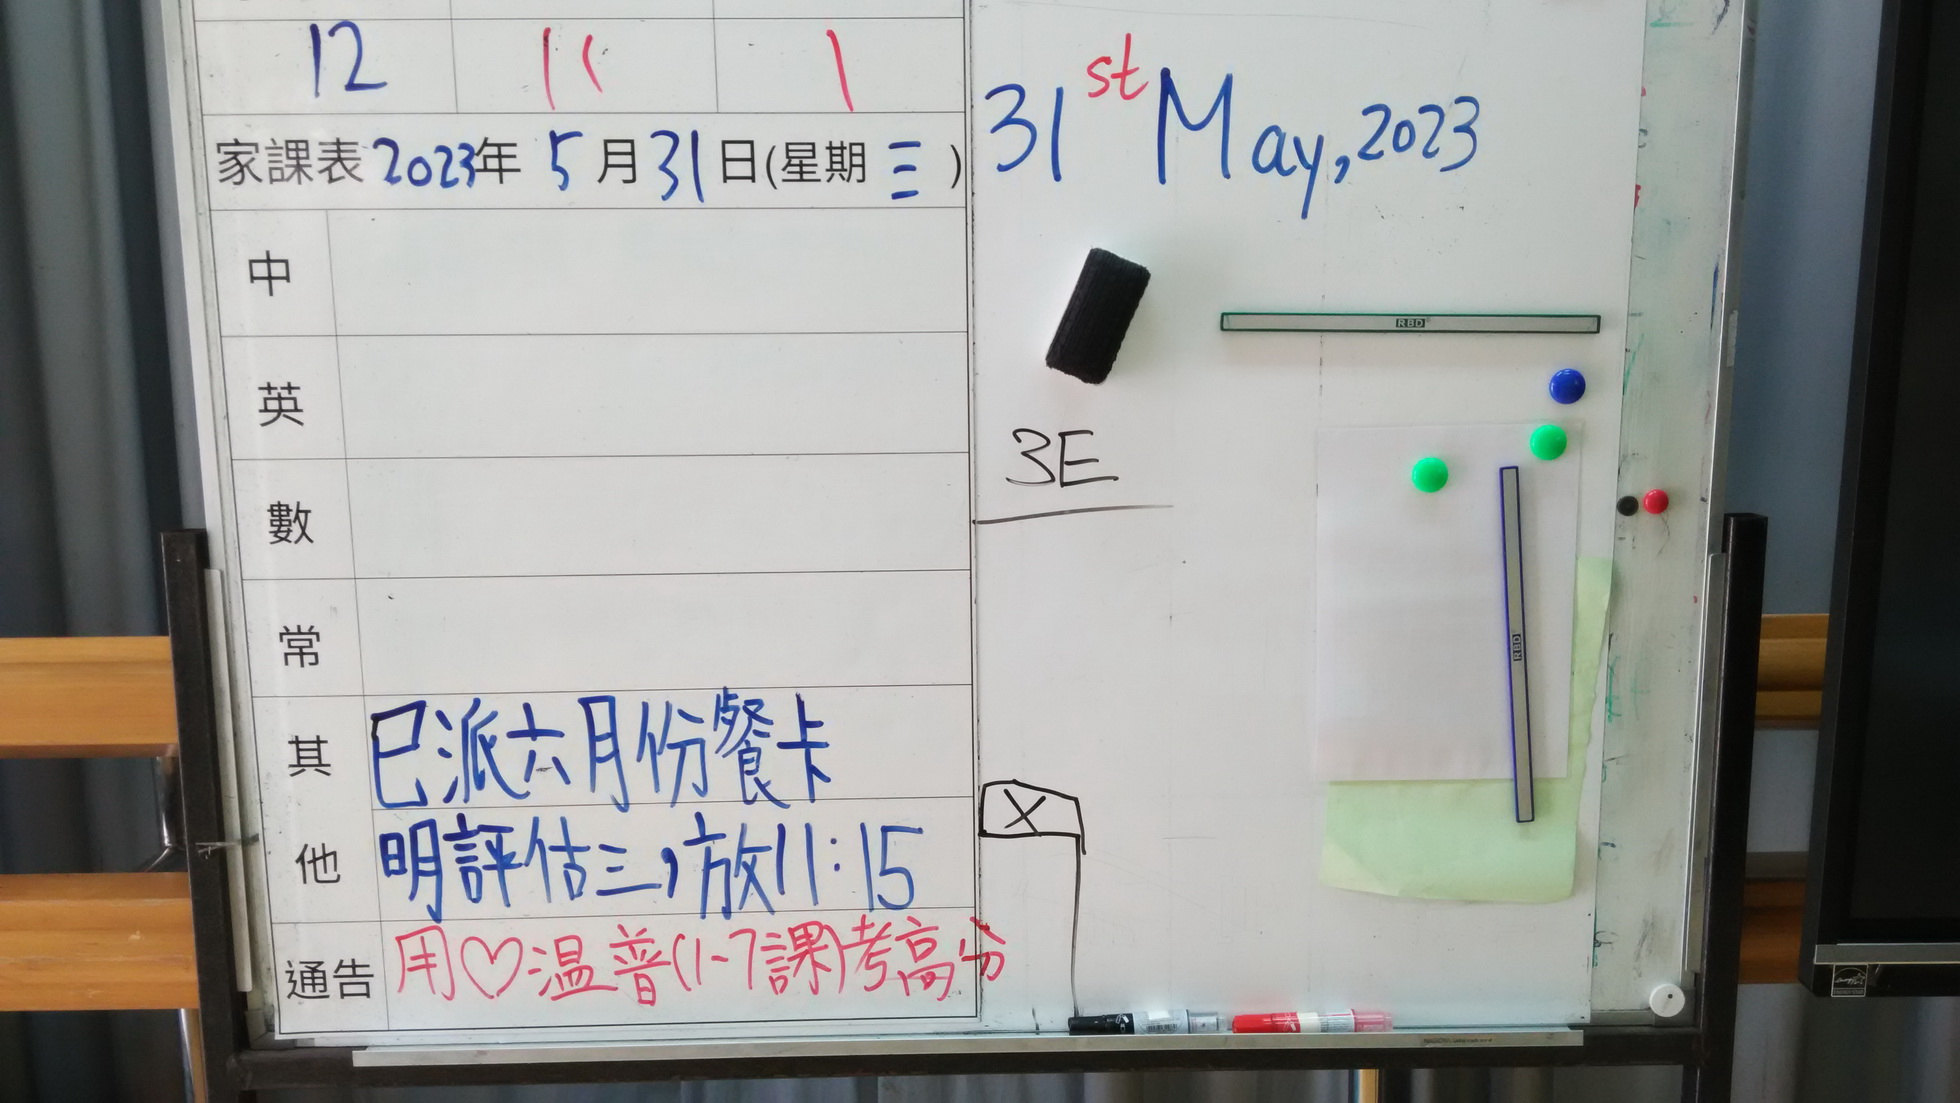 12
11
1
31st May, 2023
家課表 2023年 5月31日(星期三)
中
英
3E
數
常
其他
已派六月份餐卡
X
明評估三，放11:15
通告
用♡温普(1-7課)考高分
RBD
RBD